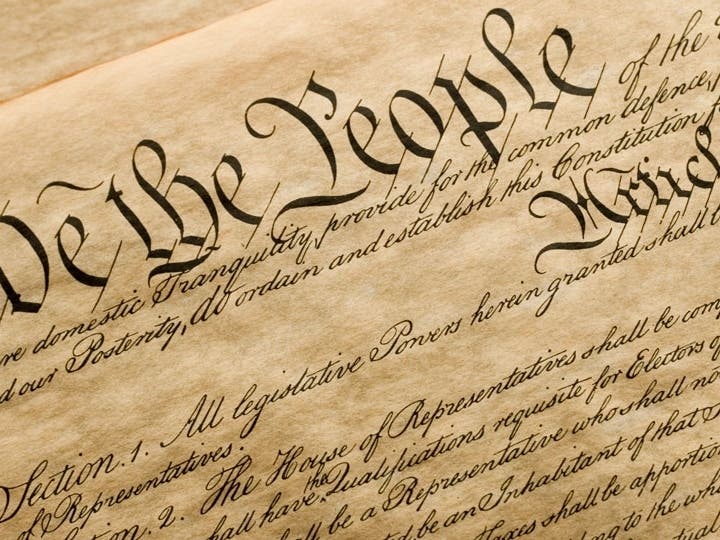 We the People of the
re domestic Tranquility, provide for the common defence,
d our Posterity, do ordain and establish this Constitution f
Article
Section. 1. All legislative Powers herein granted shall
of Representatives.
on. 2. The House of Representatives shall be com
hall have the Qualifications requisite for Electors of
ll be a Representative who shall no
d be an Inhabitant of that
Taxes shall be apportion
ing to the who